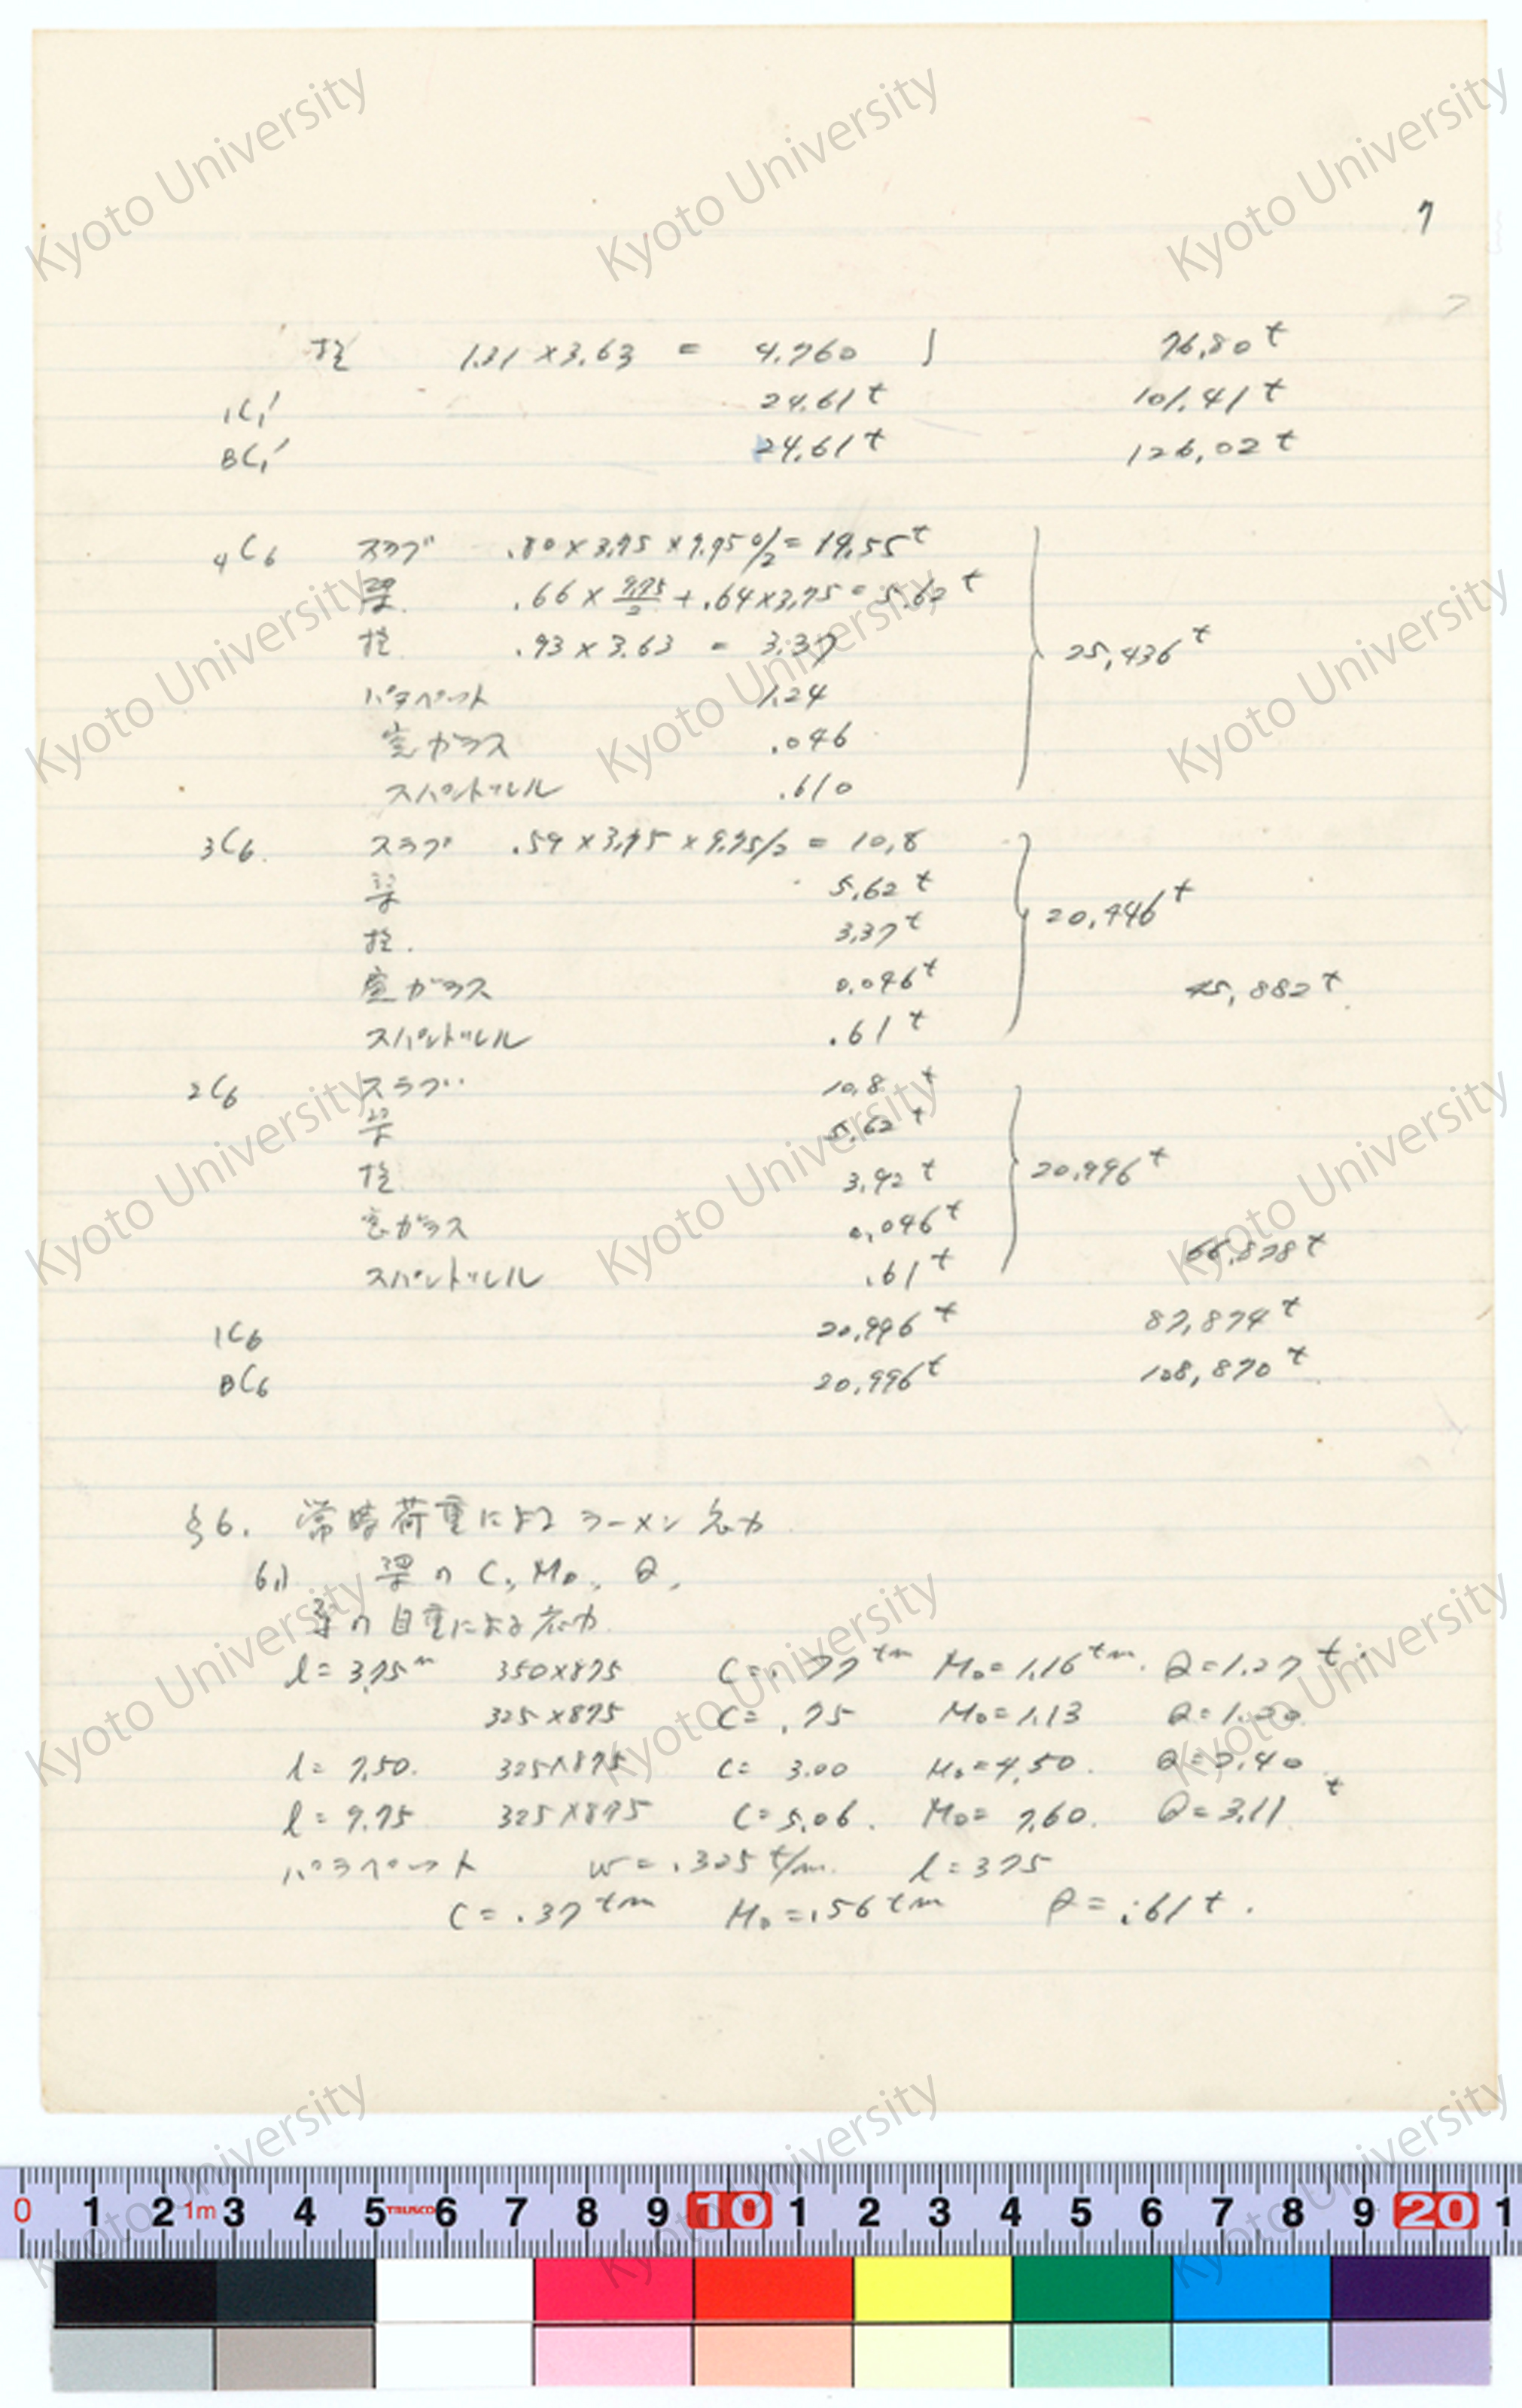 7
柱 1.31 × 3.63 = 4.760 } 76.80 t
1C1' 24.61 t 101.41 t
BC1' 24.61 t 126.02 t
4C6 スラブ .80 × 3.75 × 9.75/2 = 14.55 t
梁. .66 × 9.75/2 + .64 × 3.75 = 5.62 t
柱. .93 × 3.63 = 3.37
パラペット 1.24
窓ガラス .046
スパンドレル .610
25,436 t
3C6. スラブ .59 × 3.75 × 9.75/2 = 10.8
梁 5.62 t
柱. 3.37 t
窓ガラス 0.046 t
スパンドレル .61 t
20,446 t
45,882 t
2C6 スラブ 10.8 t
梁 5.62 t
柱. 3.92 t
窓ガラス 0.046 t
スパンドレル .61 t
20.996 t
66,878 t
1C6 20.996 t 87,874 t
BC6 20.996 t 108,870 t
§6. 常時荷重によるラーメン応力
6.1) 梁の C, M0, Q,
梁の自重による応力.
l = 3.75 m 350×875 C = .77 tm M0 = 1.16 tm. Q = 1.27 t.
325×875 C = .75 M0 = 1.13 Q = 1.20
l = 7.50. 325×875 C = 3.00 M0 = 4.50. Q = 2.40
l = 9.75 325×875 C = 5.06. M0 = 7.60. Q = 3.11 t
パラペット w = .325 t/m. l = 375
C = .37 tm M0 = .56 tm Q = .61 t.
Kyoto University
0 1 2 1m 3 4 5 TRUSCO 6 7 8 9 10 1 2 3 4 5 6 7 8 9 20 1